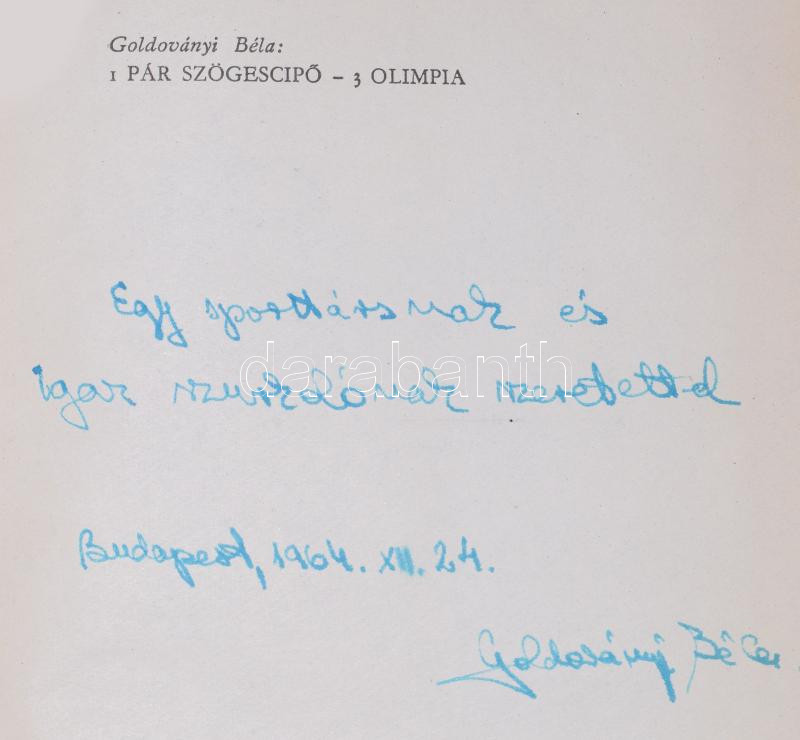 Goldoványi Béla:
1 PÁR SZÖGESCIPŐ – 3 OLIMPIA
Egy sporttársnak és
igaz szurkolónak szeretettel
darabanth
Budapest, 1964. XII. 24.
Goldoványi Béla